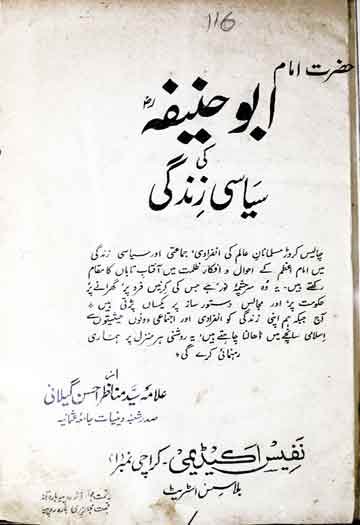 116
حضرت امام
ابو حنیفہ رض
کی
سیاسی زندگی
چالیس کروڑ مسلمانانِ عالم کی انفرادی، جماعتی اور سیاسی زندگی
میں امام اعظم کے احوال و افکار ظلمت میں آفتابِ تاباں کا مقام
رکھتے ہیں۔ یہ وہ سرچشمۂ نور ہے جس کی کرنیں فرد پر، گھرانے پر
حکومت پر، اور مجالس دستور ساز پر یکساں پڑتی ہیں
آج جبکہ ہم اپنی زندگی کو انفرادی اور اجتماعی دونوں حیثیتوں سے
اسلامی سانچے میں ڈھالنا چاہتے ہیں، یہ روشنی ہر منزل پر ہماری
رہنمائی کرے گی
از
علامہ سید مناظر احسن گیلانی
صدر شعبۂ دینیات جامعہ عثمانیہ
نفیس اکیڈیمی۔ کراچی نمبر (۱)
بلاسس اسٹریٹ